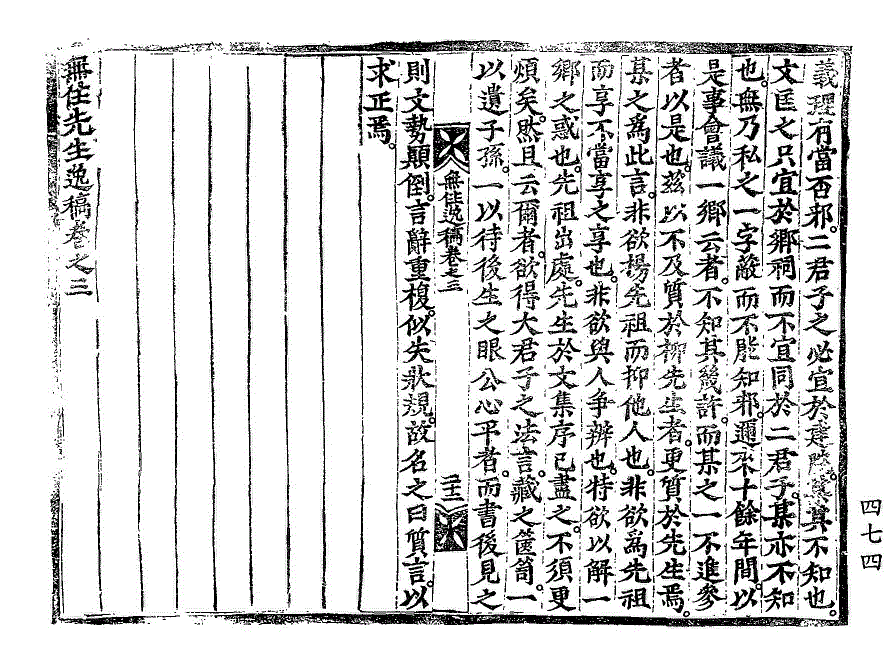 義理有當否邪。二君子之必宜於建院。某算不知也。
文匡之只宜於鄕祠而不宜同於二君子。某亦不知
也。無乃私之一字蔽而不能知邪。邇來十餘年間。以
是事會議一鄕云者。不知其幾許。而某之一不進參
者以是也。玆以不及質於柳先生者。更質於先生焉。
某之爲此言。非欲揚先祖而抑他人也。非欲爲先祖
而享不當享之享也。非欲與人爭辨也。特欲以解一
鄕之惑也。先祖出處。先生於文集序已盡之。不須更
煩矣。然且云爾者。欲得大君子之法言。藏之篋笥。一
以遺子孫。一以待後生之眼公心平者。而書後見之
無住逸稿卷之三
二十二
則文勢顚倒。言辭重複。似失狀規。故名之曰質言。以
求正焉。
無住先生逸稿卷之三
四七四